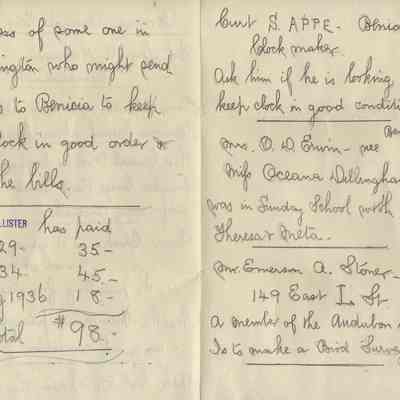 ess of some one in
ington who might send
s to Benicia to keep
lock in good order &
he bills.
LLISTER has paid
29- 35-
34. 45.-
g 1936 18.-
otal $98.-
Curt S. APPE- Benicia
Clock maker.
Ask him if he is looking
keep clock in good conditi
Ben
Mrs. O. D Erwin- nee
Miss Oceana Dillingham
was in Sunday School with
Theresa & Meta.-
Mr. Emerson A. Stoner-
149 East L St
A member of the Audubon
Is to make a Bird Survey